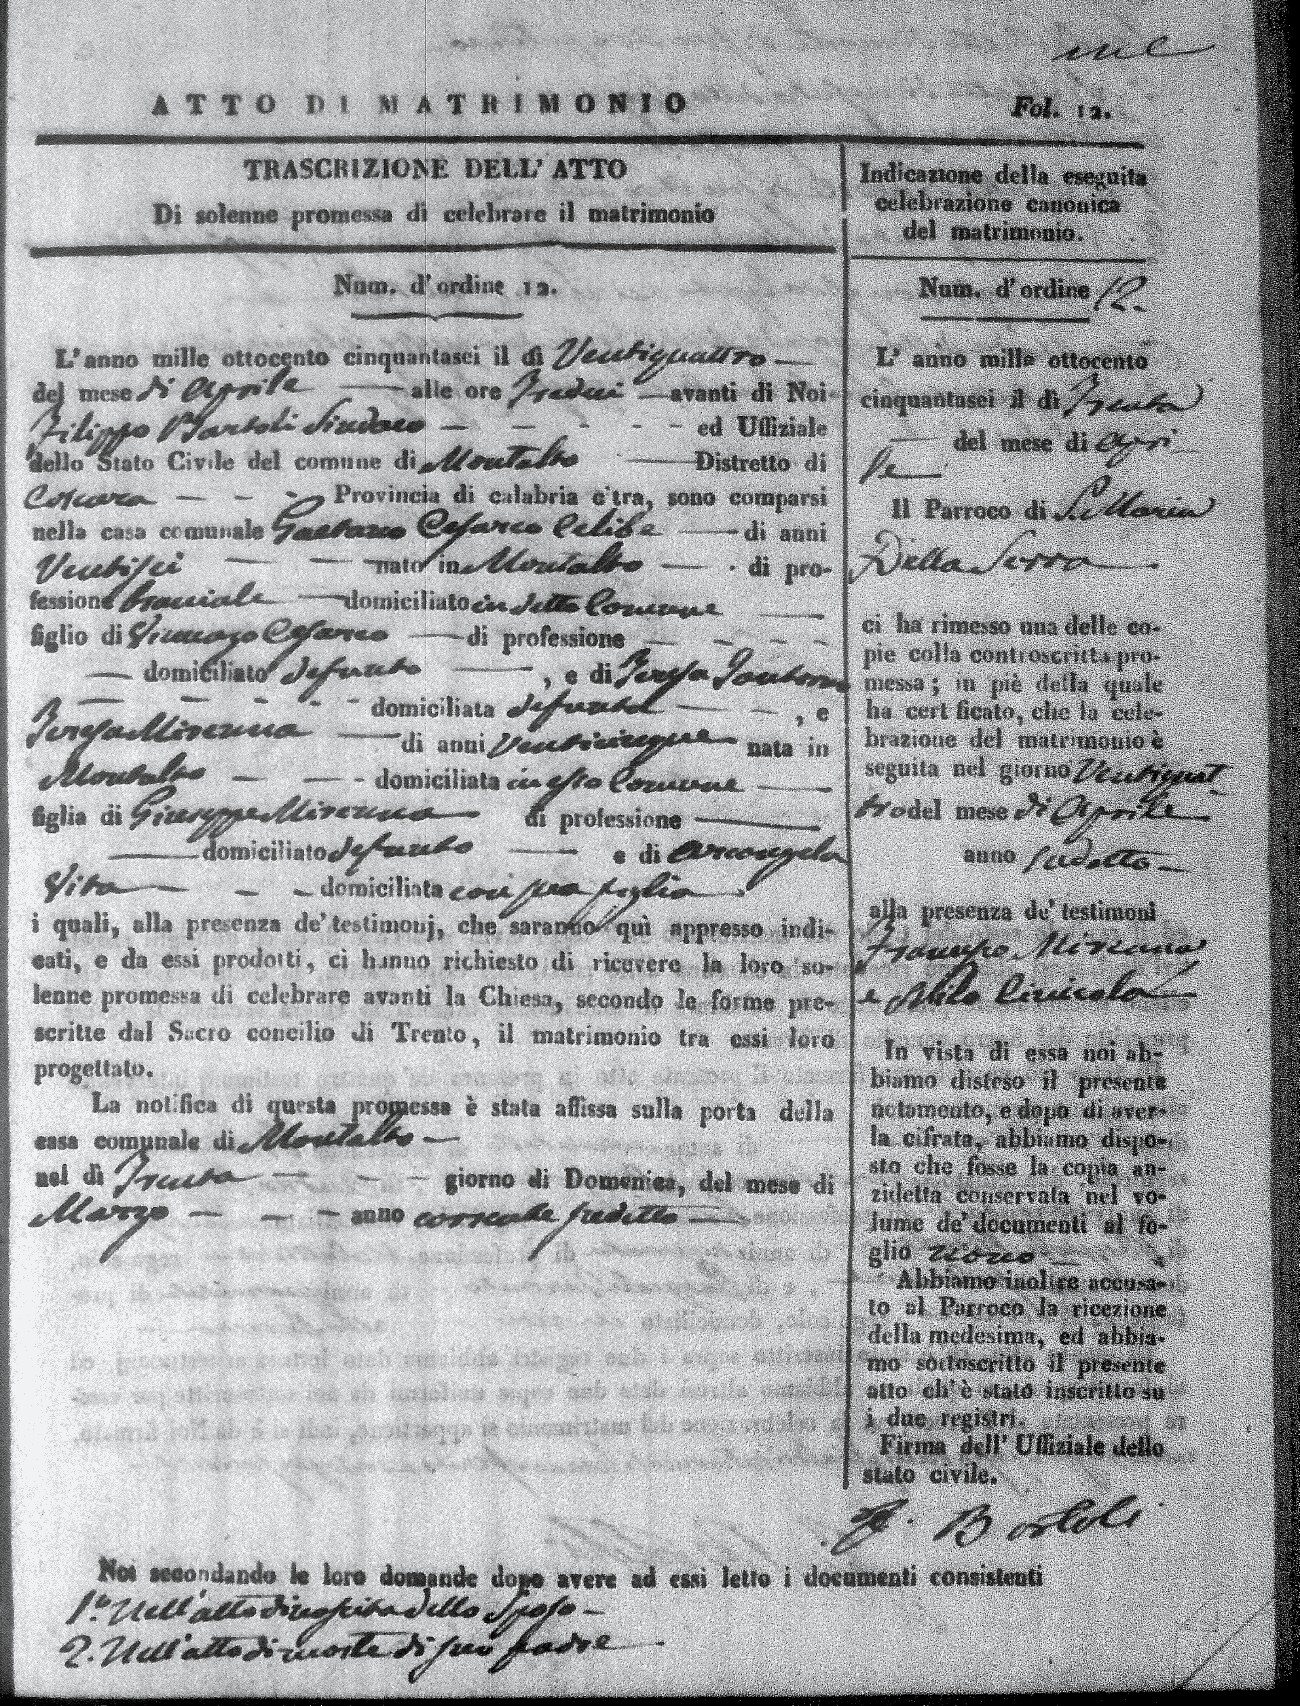 ATTO DI MATRIMONIO
Fol. 12.
TRASCRIZIONE DELL' ATTO
Di solenne promessa di celebrare il matrimonio
Num. d'ordine 12.
L'anno mille ottocento cinquantasei il dì Ventiquattro
del mese di Aprile alle ore Tredici avanti di Noi
Filippo Bartoli Sindaco ed Uffiziale
dello Stato Civile del comune di Montalto Distretto di
Cosenza Provincia di calabria c'tra, sono comparsi
nella casa comunale Gaetano Cesareo Celibe di anni
Ventisei nato in Montalto di pro-
fessione bracciale domiciliato in detto Comune
figlio di Vincenzo Cesareo di professione
domiciliato defunto , e di Teresa
domiciliata defunta , e
Teresa di anni Venticinque nata in
Montalto domiciliata in esso Comune
figlia di Giuseppe di professione
domiciliato defunto e di Arcangela
Vita domiciliata con sua figlia
i quali, alla presenza de' testimonj, che saranno quì appresso indi-
cati, e da essi prodotti, ci hanno richiesto di ricevere la loro so-
lenne promessa di celebrare avanti la Chiesa, secondo le forme pre-
scritte dal Sacro concilio di Trento, il matrimonio tra essi loro
progettato.
La notifica di questa promessa è stata affissa sulla porta della
casa comunale di Montalto
nel dì Trenta giorno di Domenica, del mese di
Marzo anno corrente sudetto
Indicazione della eseguita
celebrazione canonica
del matrimonio.
Num. d'ordine 12.
L' anno mille ottocento
cinquantasei il dì Trenta
del mese di Apri
le
Il Parroco di S. Maria
Della Serra
ci ha rimesso una delle co-
pie colla controscritta pro-
messa; in piè della quale
ha cert ficato, che la cele-
brazione del matrimonio è
seguita nel giorno Ventiquat
tro del mese di Aprile
anno sudetto
alla presenza de' testimoni
Francesco
e
In vista di essa noi ab-
biamo disteso il presente
notamento, e dopo di aver-
la cifrata, abbiamo dispo-
sto che fosse la copia an-
zidetta conservata nel vo-
lume de' documenti al fo-
glio nono
Abbiamo inoltre accusa-
to al Parroco la ricezione
della medesima, ed abbia-
mo sottoscritto il presente
atto ch' è stato inscritto su
i due registri.
Firma dell' Uffiziale dello
stato civile.
F. Bartoli
Noi secondando le loro domande dopo avere ad essi letto i documenti consistenti
1.° Nell'atto di nascita dello Sposo
2. Nell'atto di morte di suo padre